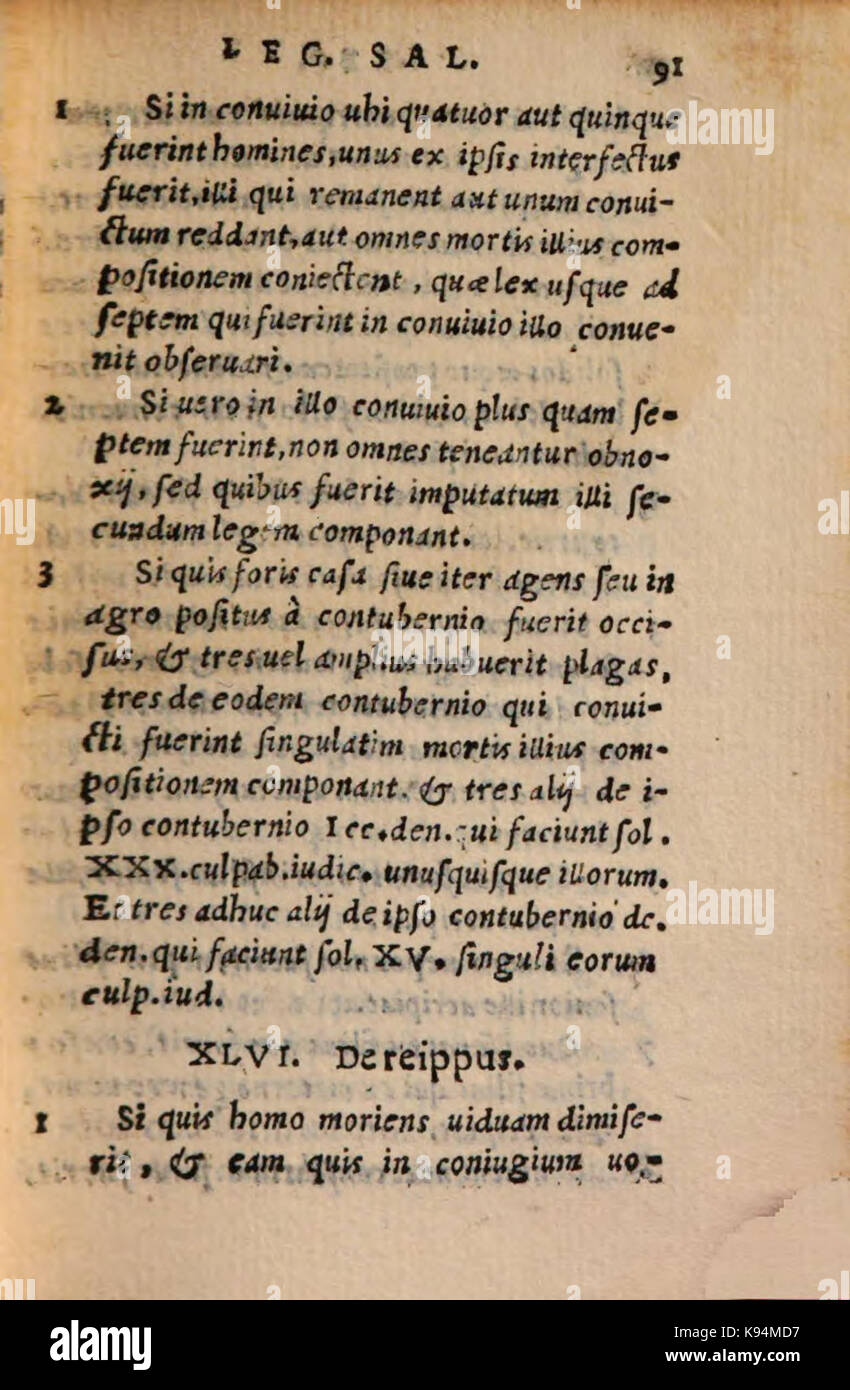 LEG. SAL. 91
1 Si in conuiuio ubi quatuor aut quinque
fuerint homines, unus ex ipſis interfectus
fuerit, illi qui remanent aut unum conui-
ctum reddant, aut omnes mortis illius com-
poſitionem coniectent, quæ lex uſque ad
ſeptem qui fuerint in conuiuio illo conue-
nit obſeruari.
2 Si uero in illo conuiuio plus quam ſe-
ptem fuerint, non omnes teneantur obno-
xij, ſed quibus fuerit imputatum illi ſe-
cundum legem componant.
3 Si quis foris caſa ſiue iter agens ſeu in
agro poſitus à contubernio fuerit occi-
ſus, & tres uel amplius habuerit plagas,
tres de eodem contubernio qui conui-
cti fuerint ſingulatim mortis illius com-
poſitionem componant. & tres alij de i-
pſo contubernio I cc. den. qui faciunt ſol.
XXX. culpab. iudic. unuſquiſque illorum.
Et tres adhuc alij de ipſo contubernio dc.
den. qui faciunt ſol. XV. ſinguli eorum
culp. iud.
XLVI. De reippus.
1 Si quis homo moriens uiduam dimiſe-
rit, & eam quis in coniugium uo-
alamy
alamy
alamy
a
alamy stock photo
K94MD7
www.alamy.com